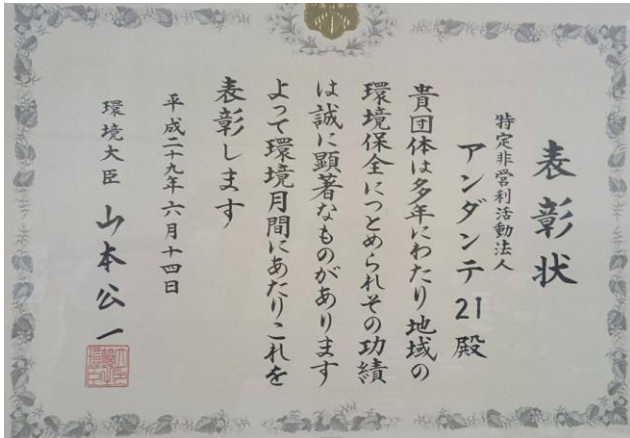 表彰状
特定非営利活動法人
アンダンテ21殿
貴団体は多年にわたり地域の
環境保全につとめられその功績
は誠に顕著なものがあります
よって環境月間にあたりこれを
表彰します
平成二十九年六月十四日
環境大臣 山本公一